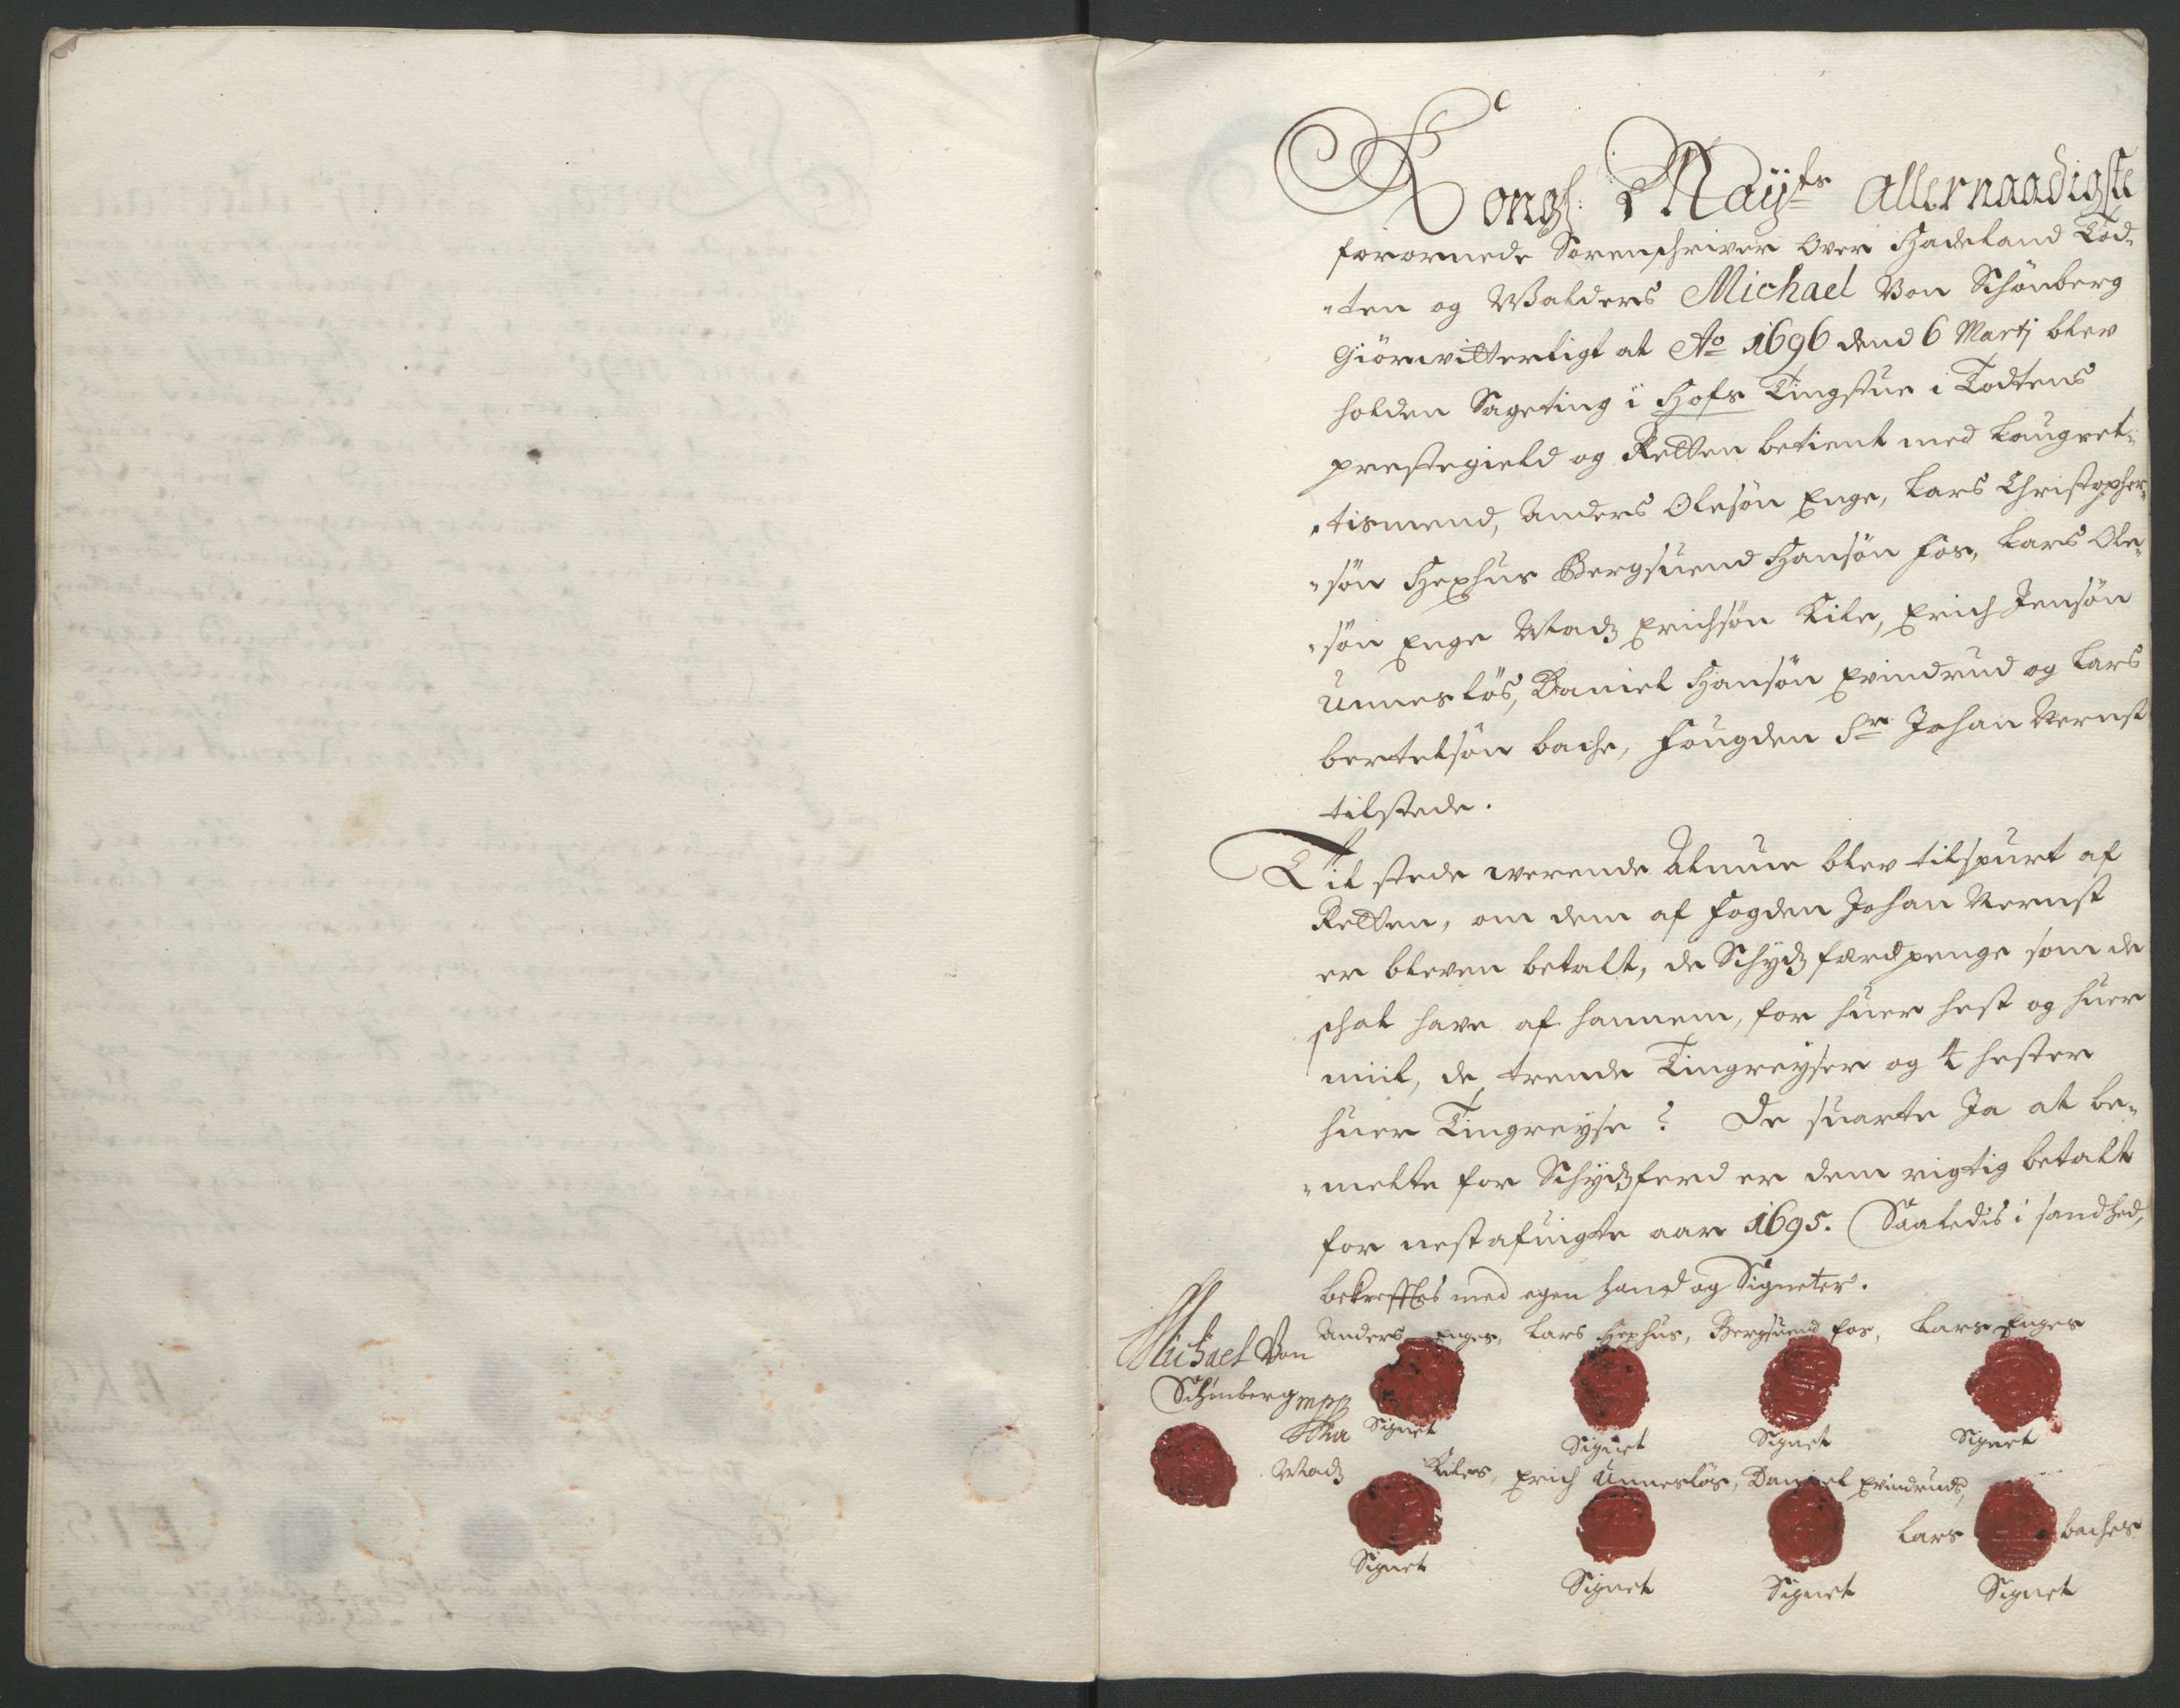 Kongl: Mayts allernaadigste
forornede Sorenschriver over Hadeland Tod-
-ten og Walders Michael Von Schönberg
Giör witterligt at Ao 1696 dend 6 Martj blev
holden Sageting i Hofs Tingstue i Todtens
prestegield og Retten betient med Laugret-
-tismend, Anders Olesön Enge, Lars Christopher-
-sön Hexhus Bergsuend Hansön Fos, Lars Ole-
-sön Enge Madz Erichsön Kile, Erich Jensön
Unnerlös, Daniel Hansön Evindrud og Lars
bertelsön bache, Fougden Sr Johan Wernst
tilstede.
Til stede werende Almue blev tilspurt af
Retten, om dem af Fogden Johan Wernst
er bleven betalt, de Schydz færdpenge som de
schal have af hannem, for huer hest og huer
miil, de trende Tingreyser og 4 hester
huer Tingreyse? De suarte Ja at be-
-melte for Schydzferd er dem rigtig betalt
for nestafuigte aar 1695. Saaledis i sandhed,
bekrefftes med egen hand og Signeter.
Anders Enges, Lars Hexhus, Bergsuend Fos, Lars Enges
Michael Von
Schönberg mpp
Signet Signet Signet Signet
Madz Kiles, Erich Unnerlös, Daniel Evindruds,
Lars baches
Signet Signet Signet Signet